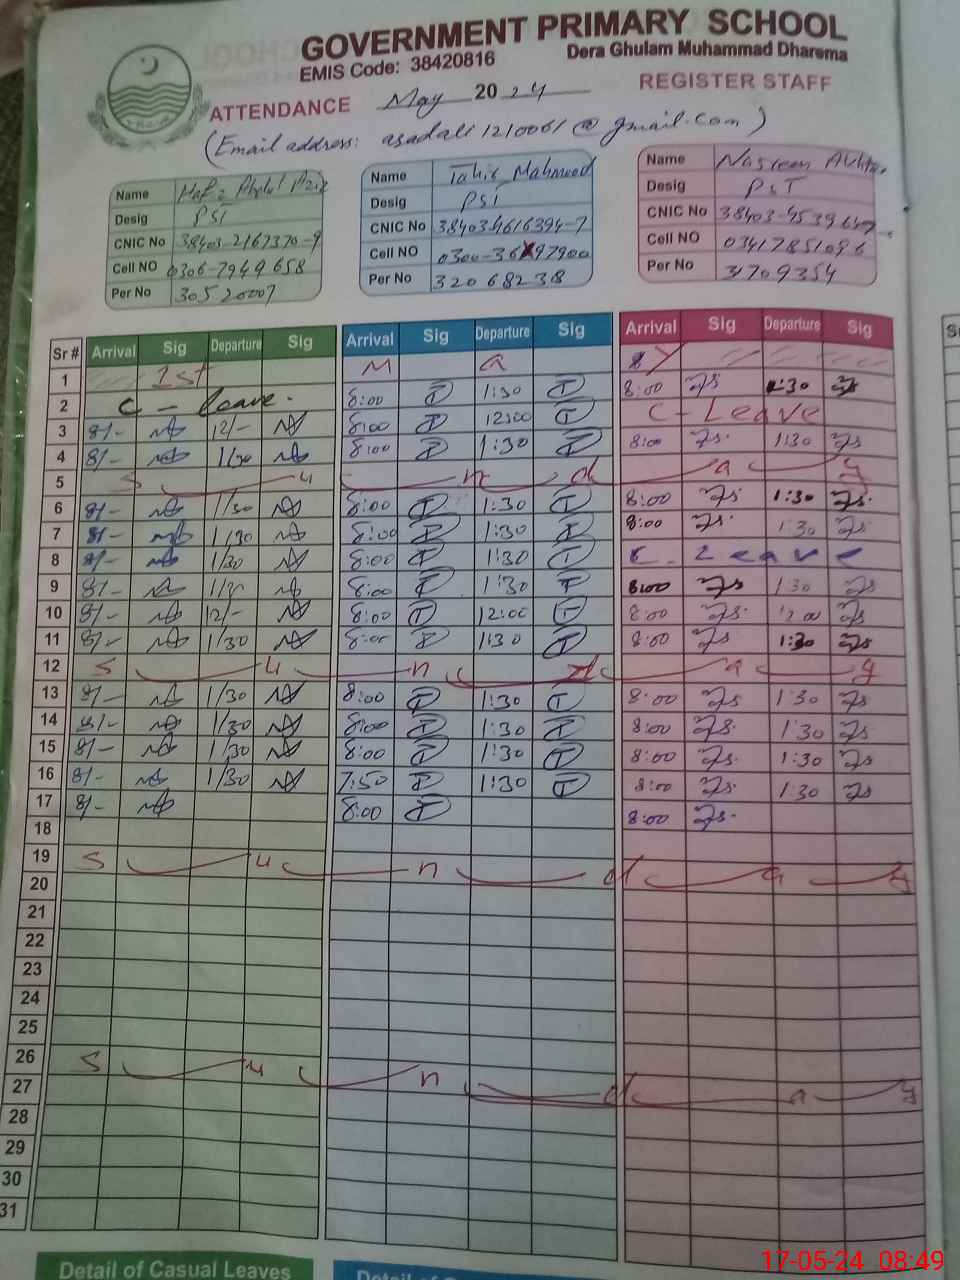 GOVERNMENT PRIMARY SCHOOL
EMIS Code: 38420816 Dera Ghulam Muhammad Dharema
ATTENDANCE May 2024 REGISTER STAFF
(Email address: asadali1210061@gmail.com)
Name Name Tahir Mahmood Name Nasreen Akhtar
Desig PST Desig PST Desig PST
CNIC No 38403-2167370-9 CNIC No 384034616394-7 CNIC No
Cell NO 0306-7949658 Cell NO Cell NO 03417851096
Per No 30520007 Per No 32068238 Per No 31709354
Sr # Arrival Sig Departure Sig Arrival Sig Departure Sig Arrival Sig Departure Sig
1 1st M a y
2 C - leave. 8:00 T 1:30 T 8:00 1:30
3 8/- 12/- 8:00 T 12:00 T C - Leave
4 8/- 1/30 8:00 T 1:30 T 8:00 1:30
5 S u n d a y
6 8/- 1/30 8:00 T 1:30 T 8:00 1:30
7 8/- 1/30 8:00 T 1:30 T 8:00 1:30
8 8/- 1/30 8:00 T 1:30 T C. Leave
9 8/- 1/30 8:00 T 1:30 T 8:00 1:30
10 8/- 12/- 8:00 T 12:00 T 8:00 12:00
11 8/- 1/30 8:00 T 1:30 T 8:00 1:30
12 S u n d a y
13 8/- 1/30 8:00 T 1:30 T 8:00 1:30
14 8/- 1/30 8:00 T 1:30 T 8:00 1:30
15 8/- 1/30 8:00 T 1:30 T 8:00 1:30
16 8/- 1/30 7:50 T 1:30 T 8:00 1:30
17 8/- 8:00 T 8:00
18
19 S u n d a y
20
21
22
23
24
25
26 S u n d a y
27
28
29
30
31
Detail of Casual Leaves Detail of
17-05-24 08:49